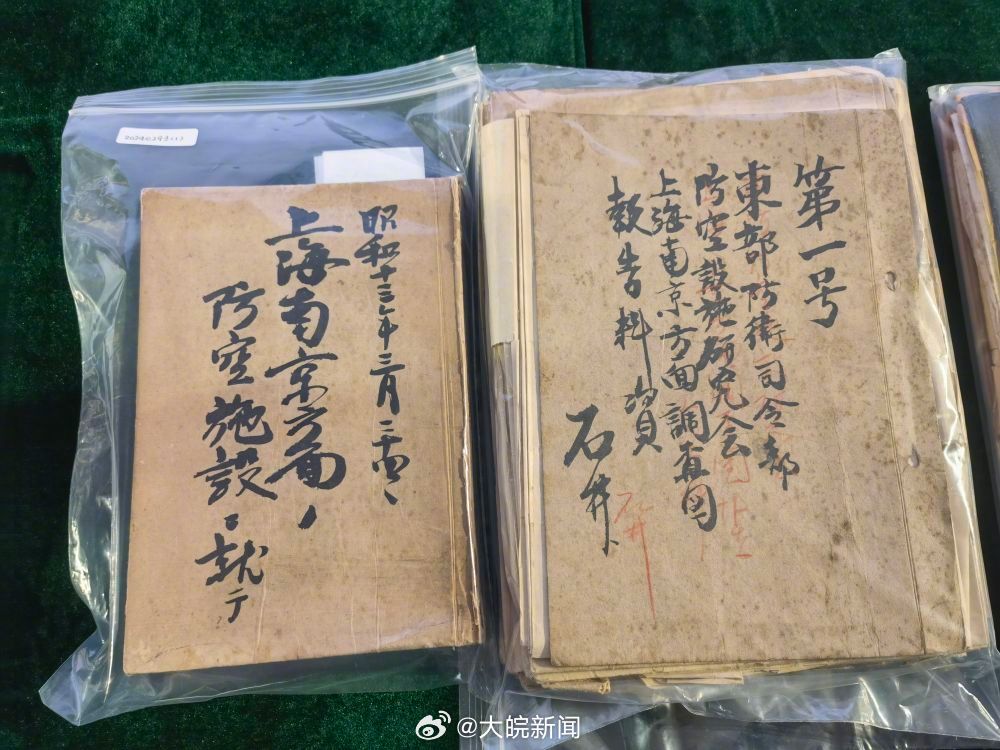 昭和十三年三月
上海南京方面ノ
防空施設ニ就テ
第一号
東部防衛司令部
防空設施研究会
上海南京方面調査
報告料資
石井
石井
@大皖新闻